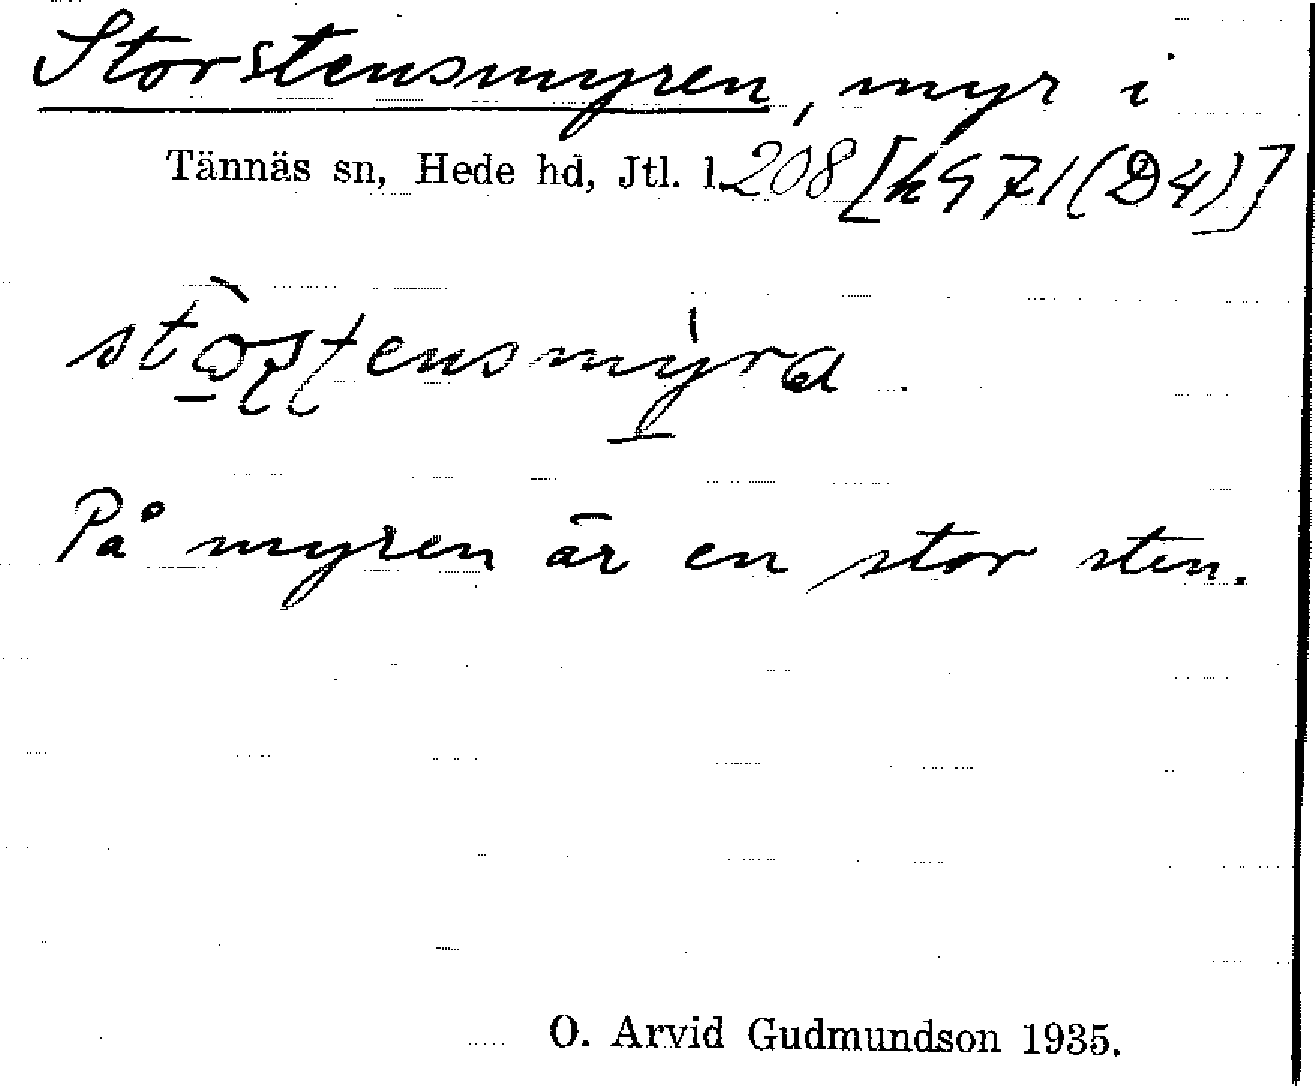 Storstensmyren, myr i
Tännäs sn, Hede hd, Jtl. l. 208 [k 971 (D4)]
På myren är en stor sten.
O. Arvid Gudmundson 1935.